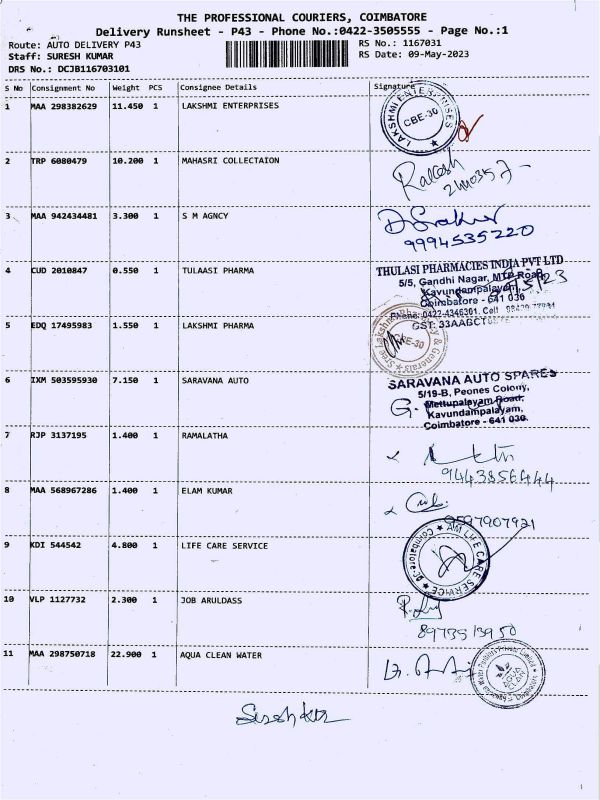 THE PROFESSIONAL COURIERS, COIMBATORE
Delivery Runsheet - P43 - Phone No.:0422-3505555 - Page No.:1
Route: AUTO DELIVERY P43 RS No.: 1167031
Staff: SURESH KUMAR RS Date: 09-May-2023
DRS No.: DCJB116703101
S No Consignment No Weight PCS Consignee Details Signature
1 MAA 298382629 11.450 1 LAKSHMI ENTERPRISES
LAKSHMI ENTERPRISES
CBE-30
2 TRP 6080479 10.200 1 MAHASRI COLLECTAION
Rakesh
3 MAA 942434481 3.300 1 S M AGNCY
9994535220
4 CUD 2010847 0.550 1 TULAASI PHARMA
THULASI PHARMACIES INDIA PVT LTD
5/5, Gandhi Nagar, MTP Road,
Kavundampalayam,
Coimbatore - 641 030
Phone: 0422-4346301, Cell
GST: 33AABCT
5 EDQ 17495983 1.550 1 LAKSHMI PHARMA
CBE-30
6 IXM 503595930 7.150 1 SARAVANA AUTO
SARAVANA AUTO SPARES
5/19-B, Peones Colony,
Mettupalayam Road,
Kavundampalayam,
Coimbatore - 641 030.
7 RJP 3137195 1.400 1 RAMALATHA
9443856444
8 MAA 568967286 1.400 1 ELAM KUMAR
9597907921
9 KDI 544542 4.800 1 LIFE CARE SERVICE
AM LIFE CARE SERVICE
10 VLP 1127732 2.300 1 JOB ARULDASS
11 MAA 298750718 22.900 1 AQUA CLEAN WATER